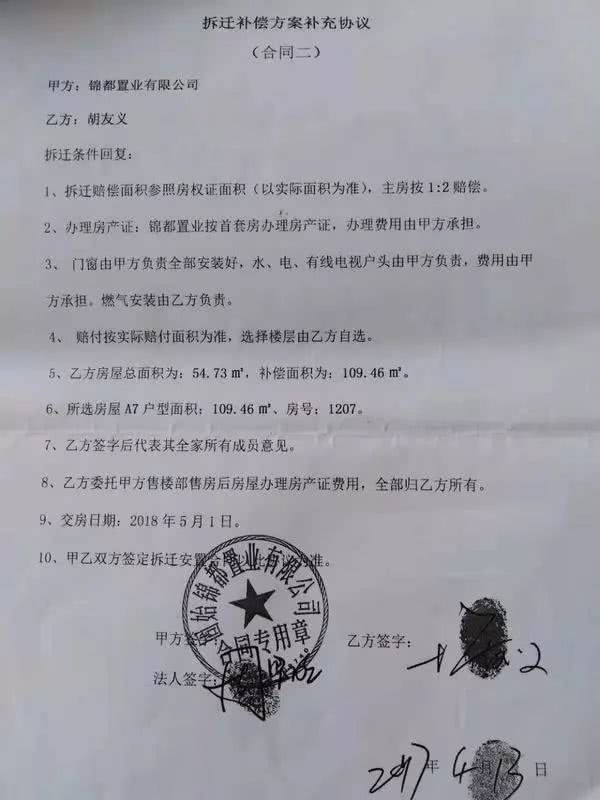 拆迁补偿方案补充协议
（合同二）
甲方：锦都置业有限公司
乙方：胡友义
拆迁条件回复：
1、拆迁赔偿面积参照房权证面积（以实际面积为准），主房按1:2赔偿。
2、办理房产证：锦都置业按首套房办理房产证，办理费用由甲方承担。
3、门窗由甲方负责全部安装好，水、电、有线电视户头由甲方负责，费用由甲
方承担。燃气安装由乙方负责。
4、赔付按实际赔付面积为准，选择楼层由乙方自选。
5、乙方房屋总面积为：54.73㎡，补偿面积为：109.46㎡。
6、所选房屋A7户型面积：109.46㎡、房号：1207。
7、乙方签字后代表其全家所有成员意见。
8、乙方委托甲方售楼部售房后房屋办理房产证费用，全部归乙方所有。
9、交房日期：2018年5月1日。
10、甲乙双方签定拆迁安置 以此协议为准。
固始锦都置业有限公司
合同专用章
甲方签字： 乙方签字：
法人签字：
2017年4月13日